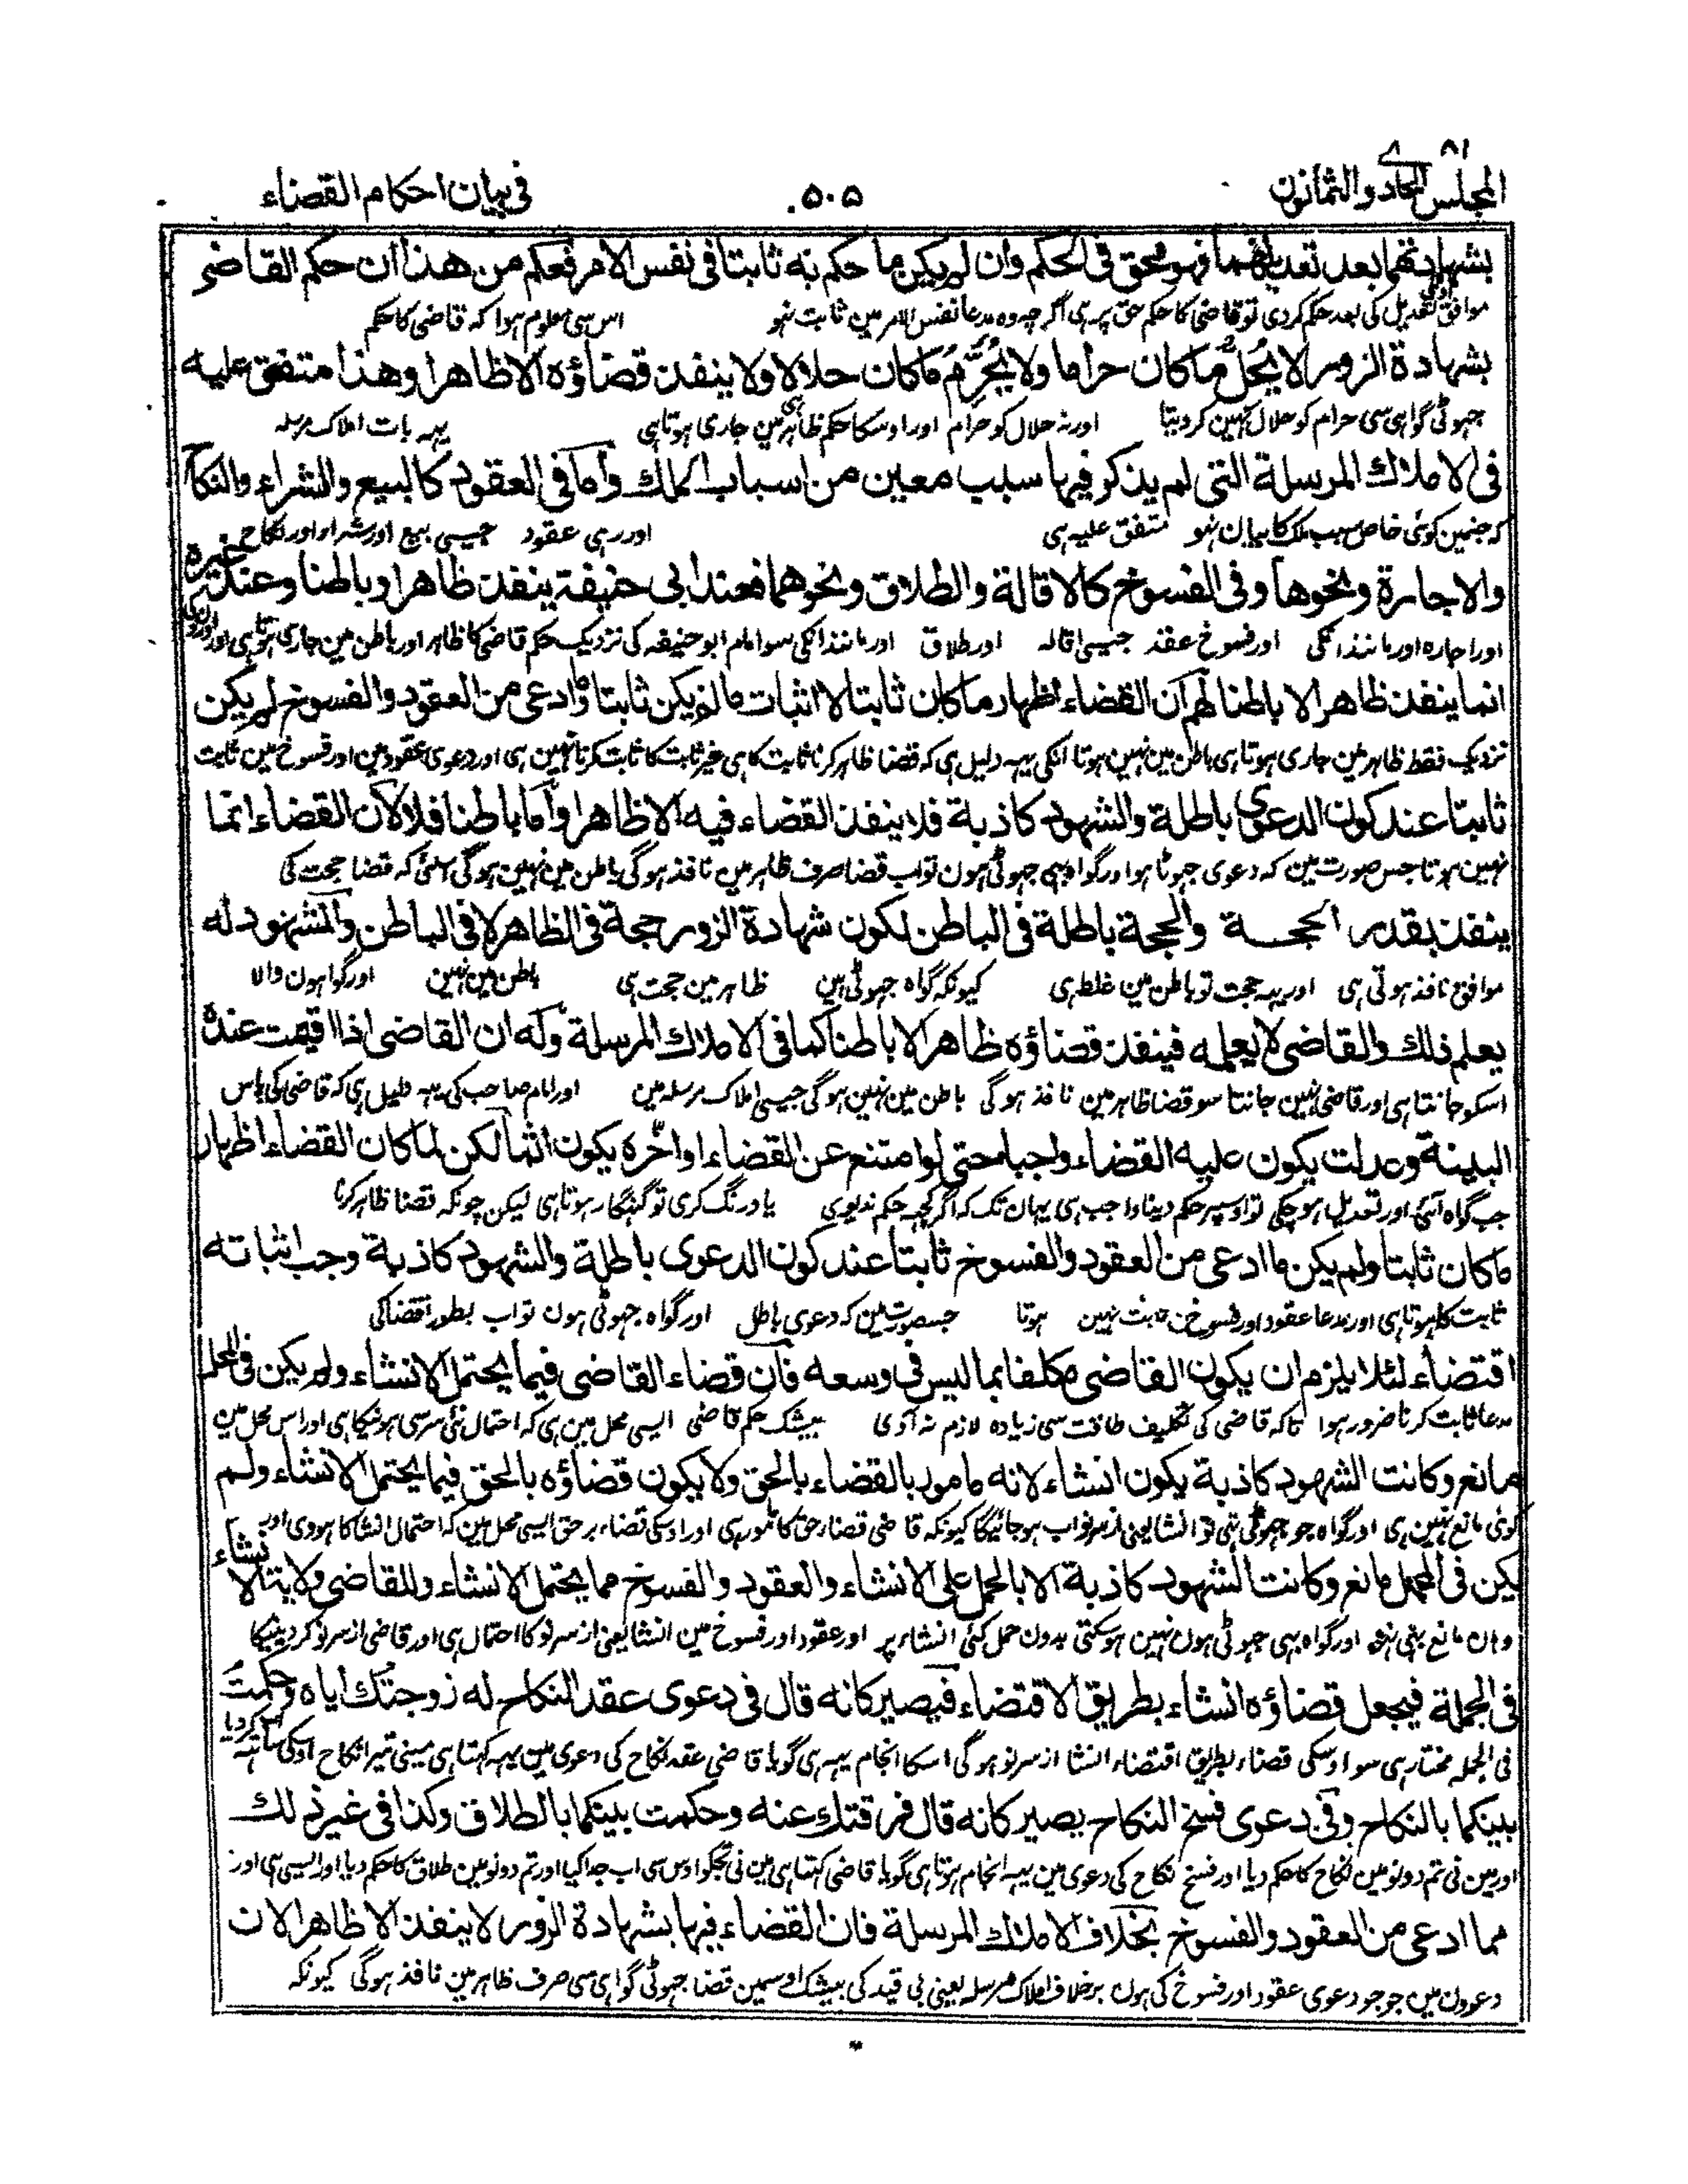 المجلس الحاد والثمانون ٨١
٥٠٥
فی بیان احکام القضاء
بشهادتهما بعد تعدیلهما فهو محق فی الحکم وان لم یکن ما حکم به ثابتا فی نفس الامر فعلم من هذا ان حکم القاضی
موافق تعدیل کی بعد حکم کردی تو قاضی کا حکم حق پر ہی اگرچہ وہ مدعا نفس الامر مین ثابت نہو اس سی معلوم ہوا کہ قاضی کا حکم
بشهادة الزور لا یُحِلُّ ما کان حراما ولا یُحَرِّمُ ما کان حلالا ولا ینفذ قضاؤه الا ظاهرا وهذا متفق علیه
جہوٹی گواہی سی حرام کو حلال نہین کردیتا اور نہ حلال کو حرام اور اوسکا حکم ظاہر ہی مین جاری ہوتا ہی یہہ بات املاک مرسلہ
فی الاملاك المرسلة التی لم یذکر فیها سبب معین من اسباب الملك واما فی العقود کالبیع والشراء والنکاح
کہ جنمین کوئی خاص سبب ملک کا بیان نہو متفق علیہ ہی اور رہی عقود جیسی بیع اور شراء اور نکاح
والاجارة ونحوها وفی الفسوخ کالاقالة والطلاق ونحوهما فعند ابی حنیفة ینفذ ظاهرا وباطنا وعند غیره
اور اجارہ اور مانند انکی اور فسوخ عقد جیسی اقالہ اور طلاق اور مانند انکی سو امام ابو حنیفہ کی نزدیک حکم قاضی کا ظاہر اور باطن مین جاری ہوتا ہی اور اورونکی
انما ینفذ ظاهرا لا باطنا لهم ان القضاء اظهار ما کان ثابتا لا اثبات ما لم یکن ثابتا وما ادعی من العقود والفسوخ لم یکن
نزدیک فقط ظاہر مین جاری ہوتا ہی باطن مین نہین ہوتا انکی یہہ دلیل ہی کہ قضا ظاہر کرنا ثابت کا ہی غیر ثابت کا ثابت کرنا نہین ہی اور دعوی عقود مین اور فسوخ مین ثابت
ثابتا عند کون الدعوی باطلة والشهود کاذبة فلا ینفذ القضاء فیه الا ظاهرا واما باطنا فلا لان القضاء انما
نہین ہوتا جس صورت مین کہ دعوی جہوٹا ہوا اور گواہ بہی جہوٹی ہون تو اب قضا صرف ظاہر مین نافذ ہوگی باطن مین نہین ہوگی اسلئی کہ قضا حجت کی
ینفذ بقدر الحجة والحجة باطلة فی الباطن لکون شهادة الزور حجة فی الظاهر لا فی الباطن والمشهود له
موافق نافذ ہوتی ہی اور یہہ حجت تو باطن مین غلط ہی کیونکہ گواہ جہوٹی ہین ظاہر مین حجت ہی باطن مین نہین اور گواہون والا
یعلم ذلك والقاضی لا یعلمه فینفذ قضاؤه ظاهرا لا باطنا کما فی الاملاك المرسلة وله ان القاضی اذا اقیمت عنده
اسکو جانتا ہی اور قاضی نہین جانتا سو قضا ظاہر مین نافذ ہوگی باطن مین نہین ہوگی جیسی املاک مرسلہ مین اور امام صاحب کی یہہ دلیل ہی کہ قاضی کی پاس
البینة وعدلت یکون علیه القضاء واجبا حتی لو امتنع عن القضاء او اخّره یکون اثما لکن لما کان القضاء اظهار
جب گواہ آئی اور تعدیل ہوچکی تو اوسپر حکم دینا واجب ہی یہان تک کہ اگر کچہہ حکم ندیوی یا درنگ کری تو گنہگار ہوتا ہی لیکن چونکہ قضا ظاہر کرنا
ما کان ثابتا ولم یکن ما ادعی من العقود والفسوخ ثابتا عند کون الدعوی باطلة والشهود کاذبة وجب اثباته
ثابت کا ہوتا ہی اور مدعا عقود اور فسوخ مین ثابت نہین ہوتا جسصورت مین کہ دعوی باطل اور گواہ جہوٹی ہون تو اب بطور اقتضا کی
اقتضاء لئلا یلزم ان یکون القاضی مکلفا بما لیس فی وسعه فان قضاء القاضی فیما یحتمل الانشاء ولم یکن فی المحل
مدعا ثابت کرنا ضرور ہوا تاکہ قاضی کی تکلیف طاقت سی زیادہ لازم نہ آوی بیشک حکم قاضی ایسی محل مین ہی کہ احتمال نئی سرسی ہونیکا ہی اور اس محل مین
مانع وکانت الشهود کاذبة یکون انشاء لانه مامور بالقضاء بالحق ولا یکون قضاؤه بالحق فیما یحتمل الانشاء ولم
کوئی مانع نہین ہی اور گواہ جو جہوٹی تہی تو انشا یعنی از سر نو اب ہو جائیگا کیونکہ قاضی قضاء حق کا مامور ہی اور اوسکی قضاء بر حق ایسی محل مین کہ احتمال انشا کا ہووی اور
یکن فی المحل مانع وکانت الشهود کاذبة الا بالحمل علی الانشاء والعقود والفسوخ مما یحتمل الانشاء وللقاضی ولایة الانشاء
وہان مانع بہی نہو اور گواہ بہی جہوٹی ہون نہین ہوسکتی بدون حمل کئی انشاء پر اور عقود اور فسوخ مین انشا یعنی از سر نو کا احتمال ہی اور قاضی از سر نو کردینیکا
فی الجملة فیجعل قضاؤه انشاء بطریق الاقتضاء فیصیر کانه قال فی دعوی عقد النکاح له زوجتُك ایاه وحکمتُ
فی الجملہ مختار ہی سو اوسکی قضاء بطریق اقتضاء انشا از سر نو ہوگی اسکا انجام یہہ ہی گویا قاضی عقد نکاح کی دعوی مین یہہ کہتا ہی مینی تیرا نکاح اوسکی ساتہہ کردیا
بینکما بالنکاح وفی دعوی فسخ النکاح یصیر کانه قال فرقتك عنه وحکمت بینکما بالطلاق وکذا فی غیر ذلك
اور مین نی تم دونو مین نکاح کا حکم دیا اور فسخ نکاح کی دعوی مین یہہ انجام ہوتا ہی گویا قاضی کہتا ہی مین نی تجکو اوس سی اب جدا کیا اور تم دونو مین طلاق کا حکم دیا اور ایسی ہی اور
مما ادعی من العقود والفسوخ بخلاف الاملاك المرسلة فان القضاء فیها بشهادة الزور لا ینفذ الا ظاهرا لان
دعوون مین جو جو دعوی عقود اور فسوخ کی ہون برخلاف املاک مرسلہ یعنی بی قید کی بیشک اوسمین قضا جہوٹی گواہی سی صرف ظاہر مین نافذ ہوگی کیونکہ